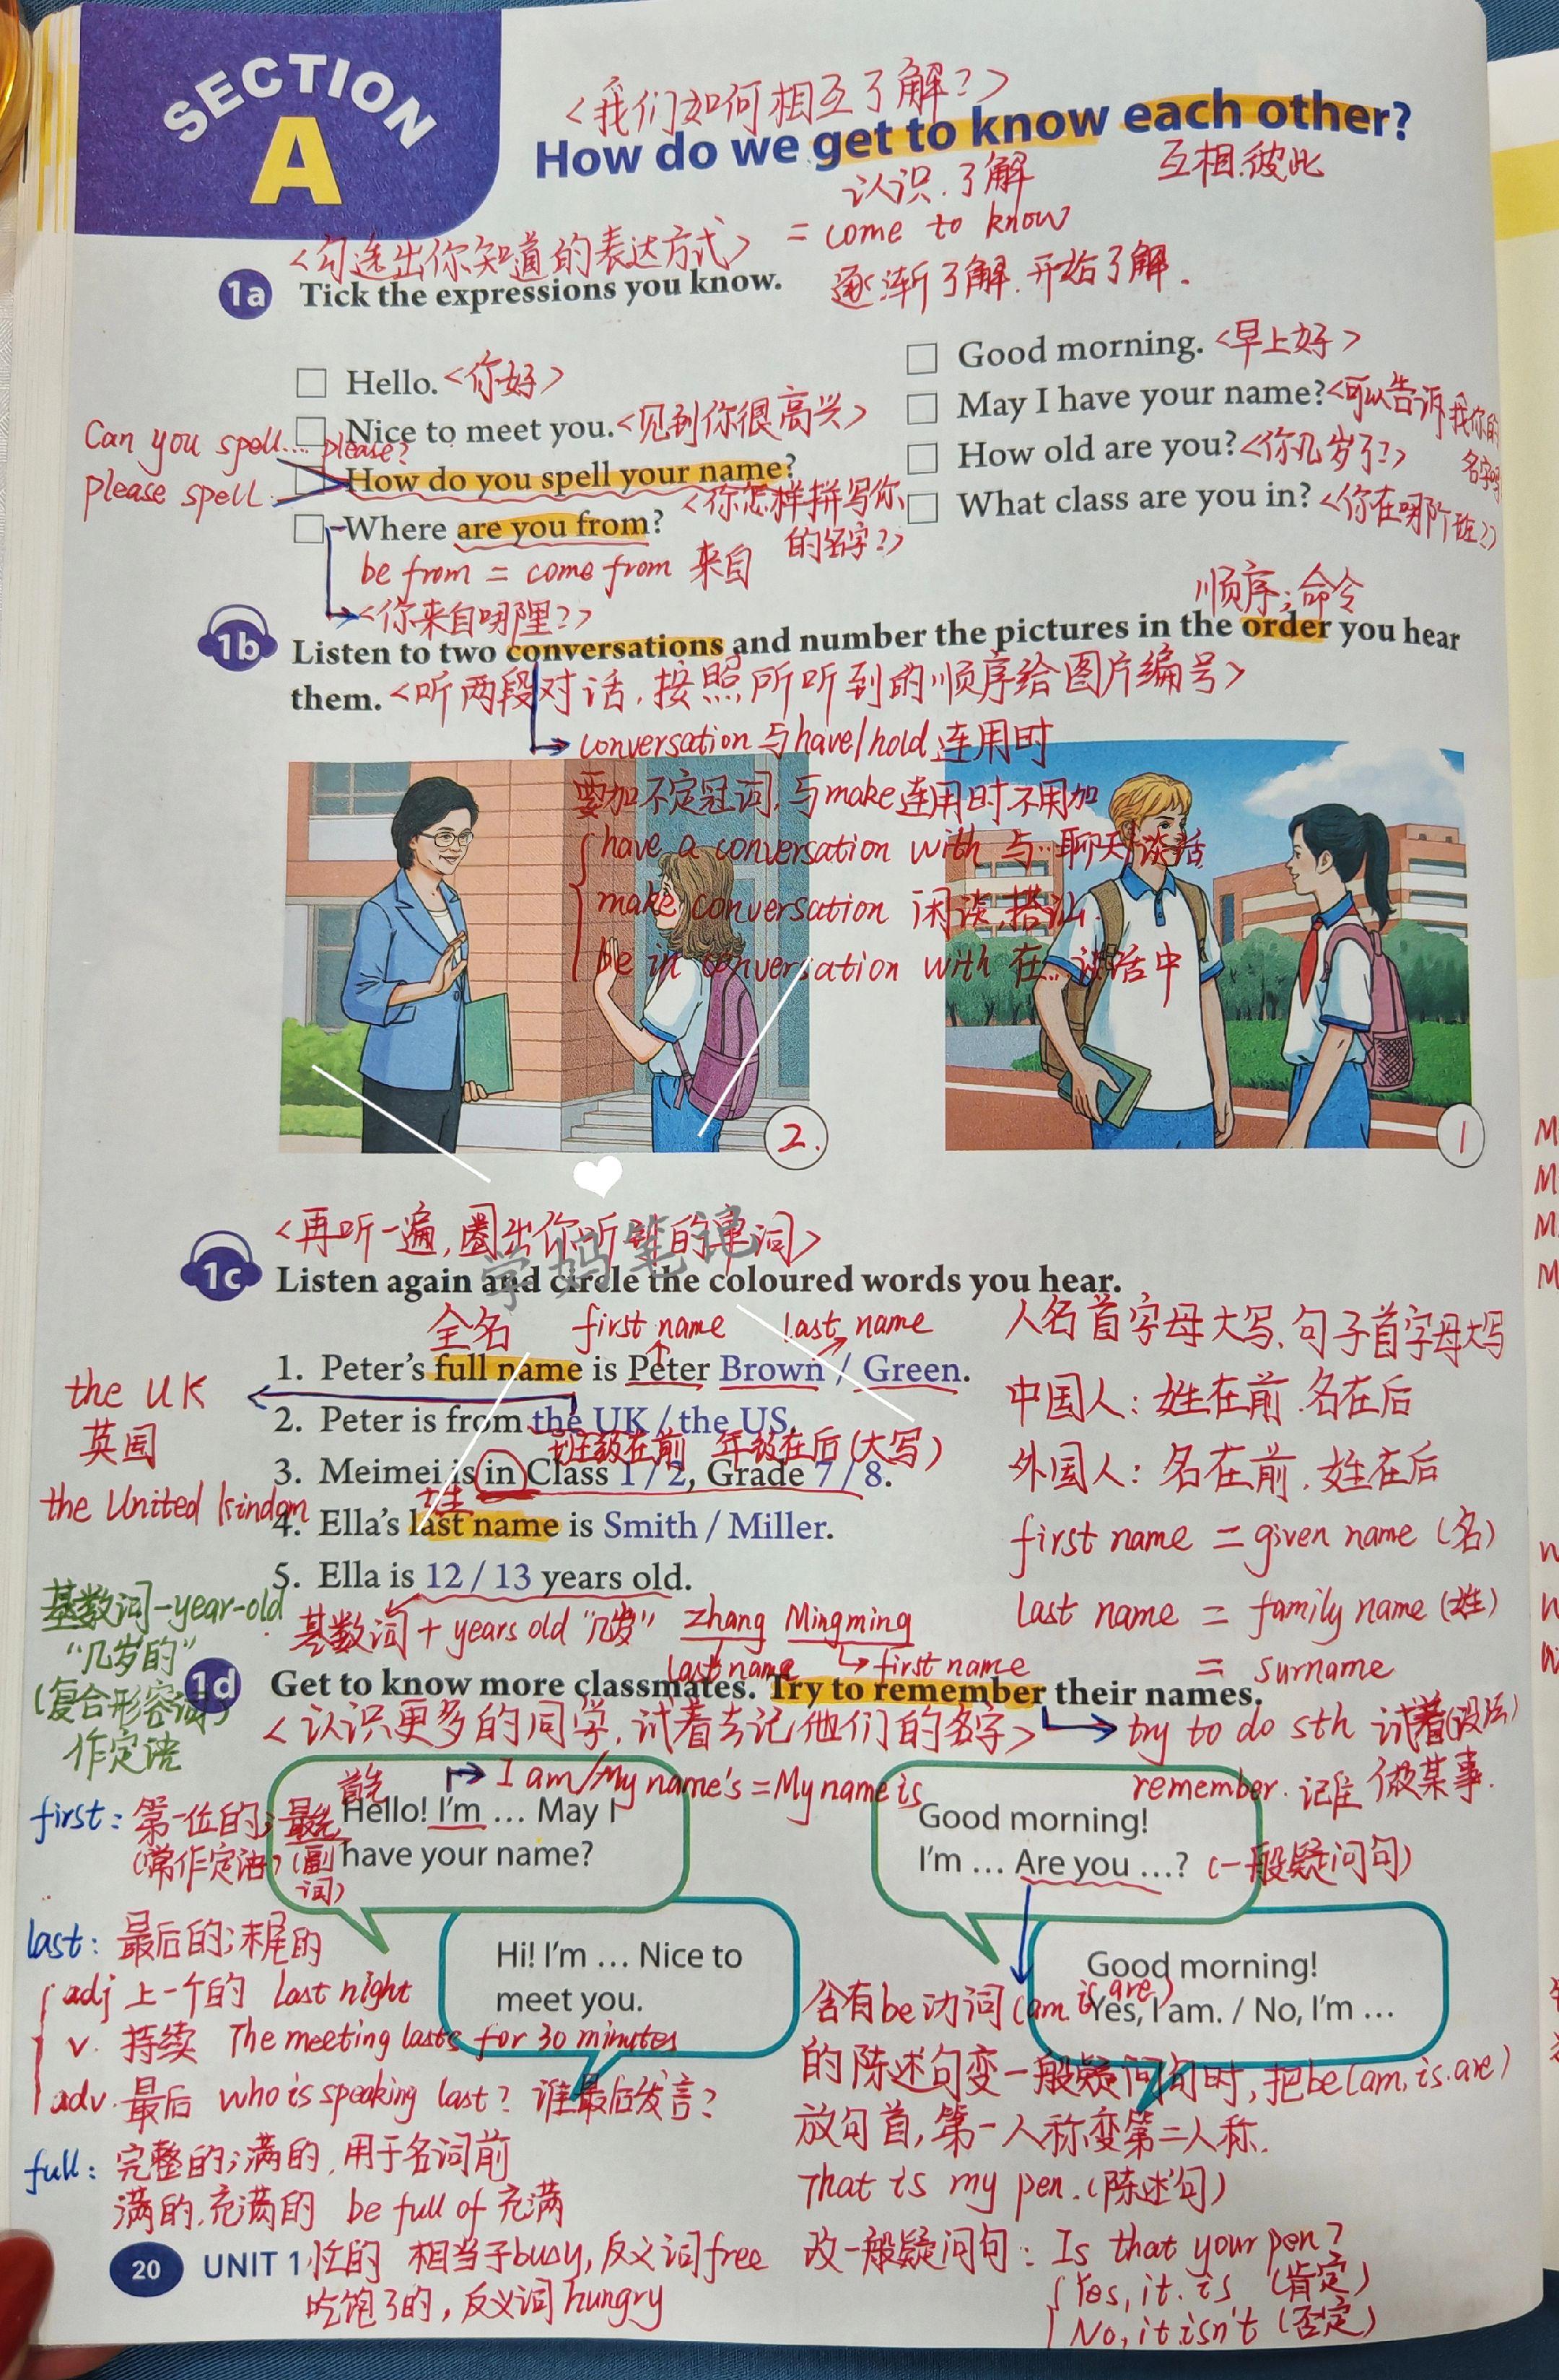 SECTION
A
<我们如何相互了解?>
How do we get to know each other?
认识.了解
互相.彼此
= come to know
逐渐了解.开始了解.
<勾选出你知道的表达方式>
1a Tick the expressions you know.
Hello. <你好>
Nice to meet you. <见到你很高兴>
Can you spell... please?
please spell
How do you spell your name?
<你怎样拼写你
的名字?>
Where are you from?
be from = come from 来自
<你来自哪里?>
Good morning. <早上好>
May I have your name? <可以告诉我你的
名字吗
How old are you? <你几岁了?>
What class are you in? <你在哪个班?>
顺序;命令
1b Listen to two conversations and number the pictures in the order you hear
them. <听两段对话,按照所听到的顺序给图片编号>
conversation 与have/hold 连用时
要加不定冠词,与make连用时不用加
have a conversation with 与...聊天/谈话
make conversation 闲谈.搭讪.
be in conversation with 在...谈话中
2.
1
<再听一遍,圈出你听到的单词>
学妈笔记
1c Listen again and circle the coloured words you hear.
全名 first name last name
1. Peter's full name is Peter Brown / Green.
2. Peter is from the UK / the US.
班级在前 年级在后(大写)
3. Meimei is in Class 1 / 2, Grade 7 / 8.
姓
4. Ella's last name is Smith / Miller.
5. Ella is 12 / 13 years old.
the UK
英国
the United kindom
人名首字母大写、句子首字母大写
中国人: 姓在前.名在后
外国人: 名在前.姓在后
first name = given name (名)
last name = family name (姓)
= surname
基数词-year-old
"几岁的"
(复合形容词)
作定语
基数词 + years old "几岁" Zhang Mingming
last name first name
1d Get to know more classmates. Try to remember their names.
<认识更多的同学,试着去记他们的名字>
try to do sth 试着(设法)
做某事.
remember. 记住
I am/My name's = My name is
首先
Hello! I'm ... May I
have your name?
Hi! I'm ... Nice to
meet you.
Good morning!
I'm ... Are you ...? (一般疑问句)
Good morning!
Yes, I am. / No, I'm ...
first: 第一位的; 最先
(常作定语) (副
词)
last: 最后的;末尾的
adj 上一个的 last night
v. 持续 The meeting lasts for 30 minutes
adv. 最后 who is speaking last? 谁最后发言?
full: 完整的;满的.用于名词前
满的.充满的 be full of 充满
忙的 相当于busy,反义词free
吃饱了的,反义词hungry
含有be动词(am is are)
的陈述句变一般疑问句时,把be(am.is.are)
放句首,第一人称变第二人称.
That is my pen.(陈述句)
改一般疑问句: Is that your pen?
Yes, it. is (肯定)
No, it isn't (否定)
20 UNIT 1